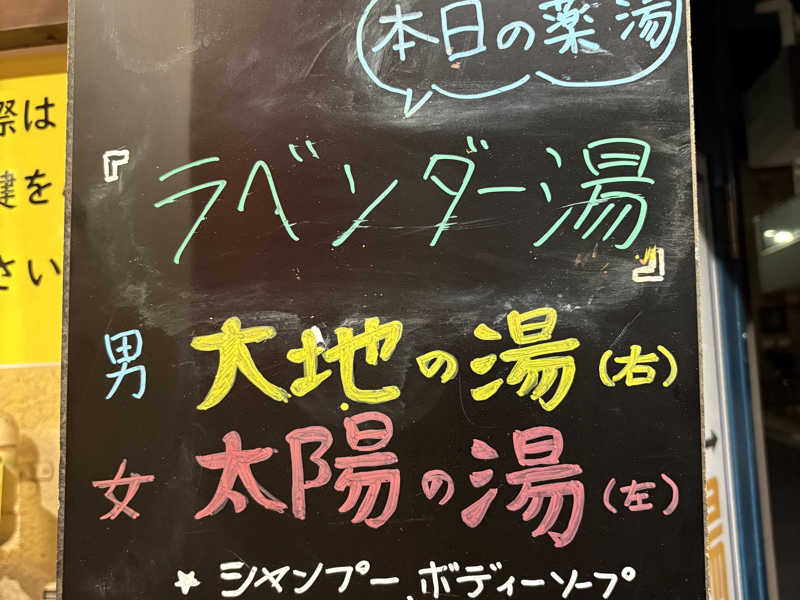 本日の薬湯
『ラベンダー湯』
男 大地の湯(右)
女 太陽の湯(左)
☆ シャンプー、ボディーソープ
際は
鍵を
さい